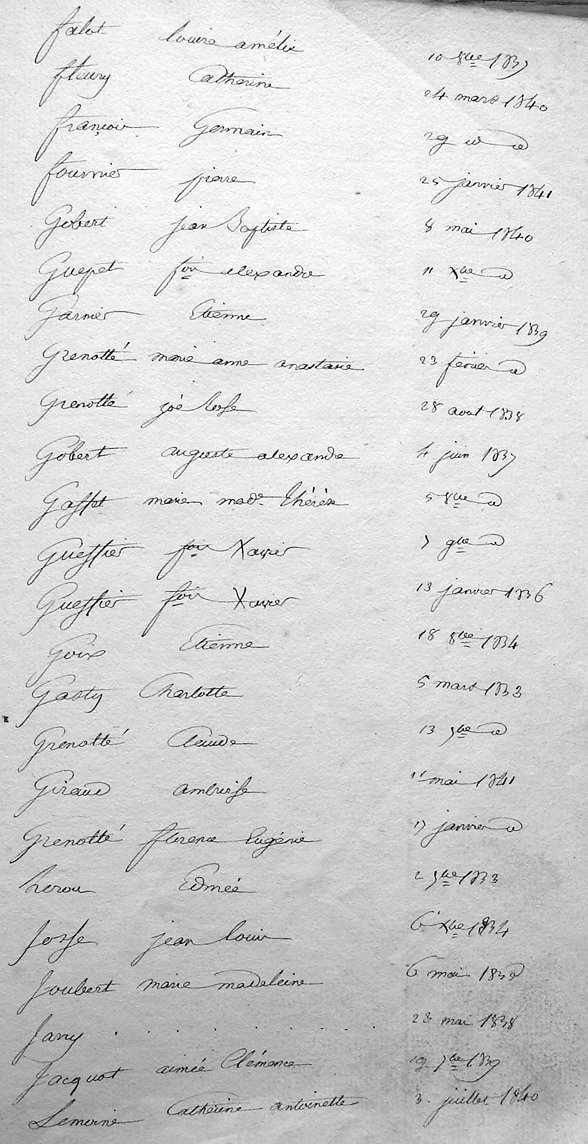 falot louise amélie 10 8bre 1837
fleury Catherine 24 mars 1840
françois Germain 29 id d
fournier pierre 25 janvier 1841
Gobert jean Baptiste 8 mai 1840
Guepet fois alexandre 11 Xbre d
Garnier Etienne 29 janvier 1839
Grenotté marie anne anastasie 23 février d
Grenotté josé 28 aout 1838
Gobert auguste alexandre 4 juin 1837
Gaffet marie made Thérèse 5 8bre d
Gueffier fois Xavier 7 9bre d
Gueffier fois Xavier 13 janvier 1836
Goix Etienne 18 8bre 1834
Gasty Charlotte 5 mars 1833
Grenotté Claude 13 9bre d
Giraud ambroise 11 mai 1841
Grenotté florence Eugénie 17 janvier d
herou Edmée 2 9bre 1833
Josse jean louis 6 Xbre 1834
Joubert marie madeleine 6 mai
Jarry . . . . . . . 23 mai 1838
Jacquot aimée Clémence 19 7bre 1839
Lemoine Catherine antoinette 3 juillet 1840